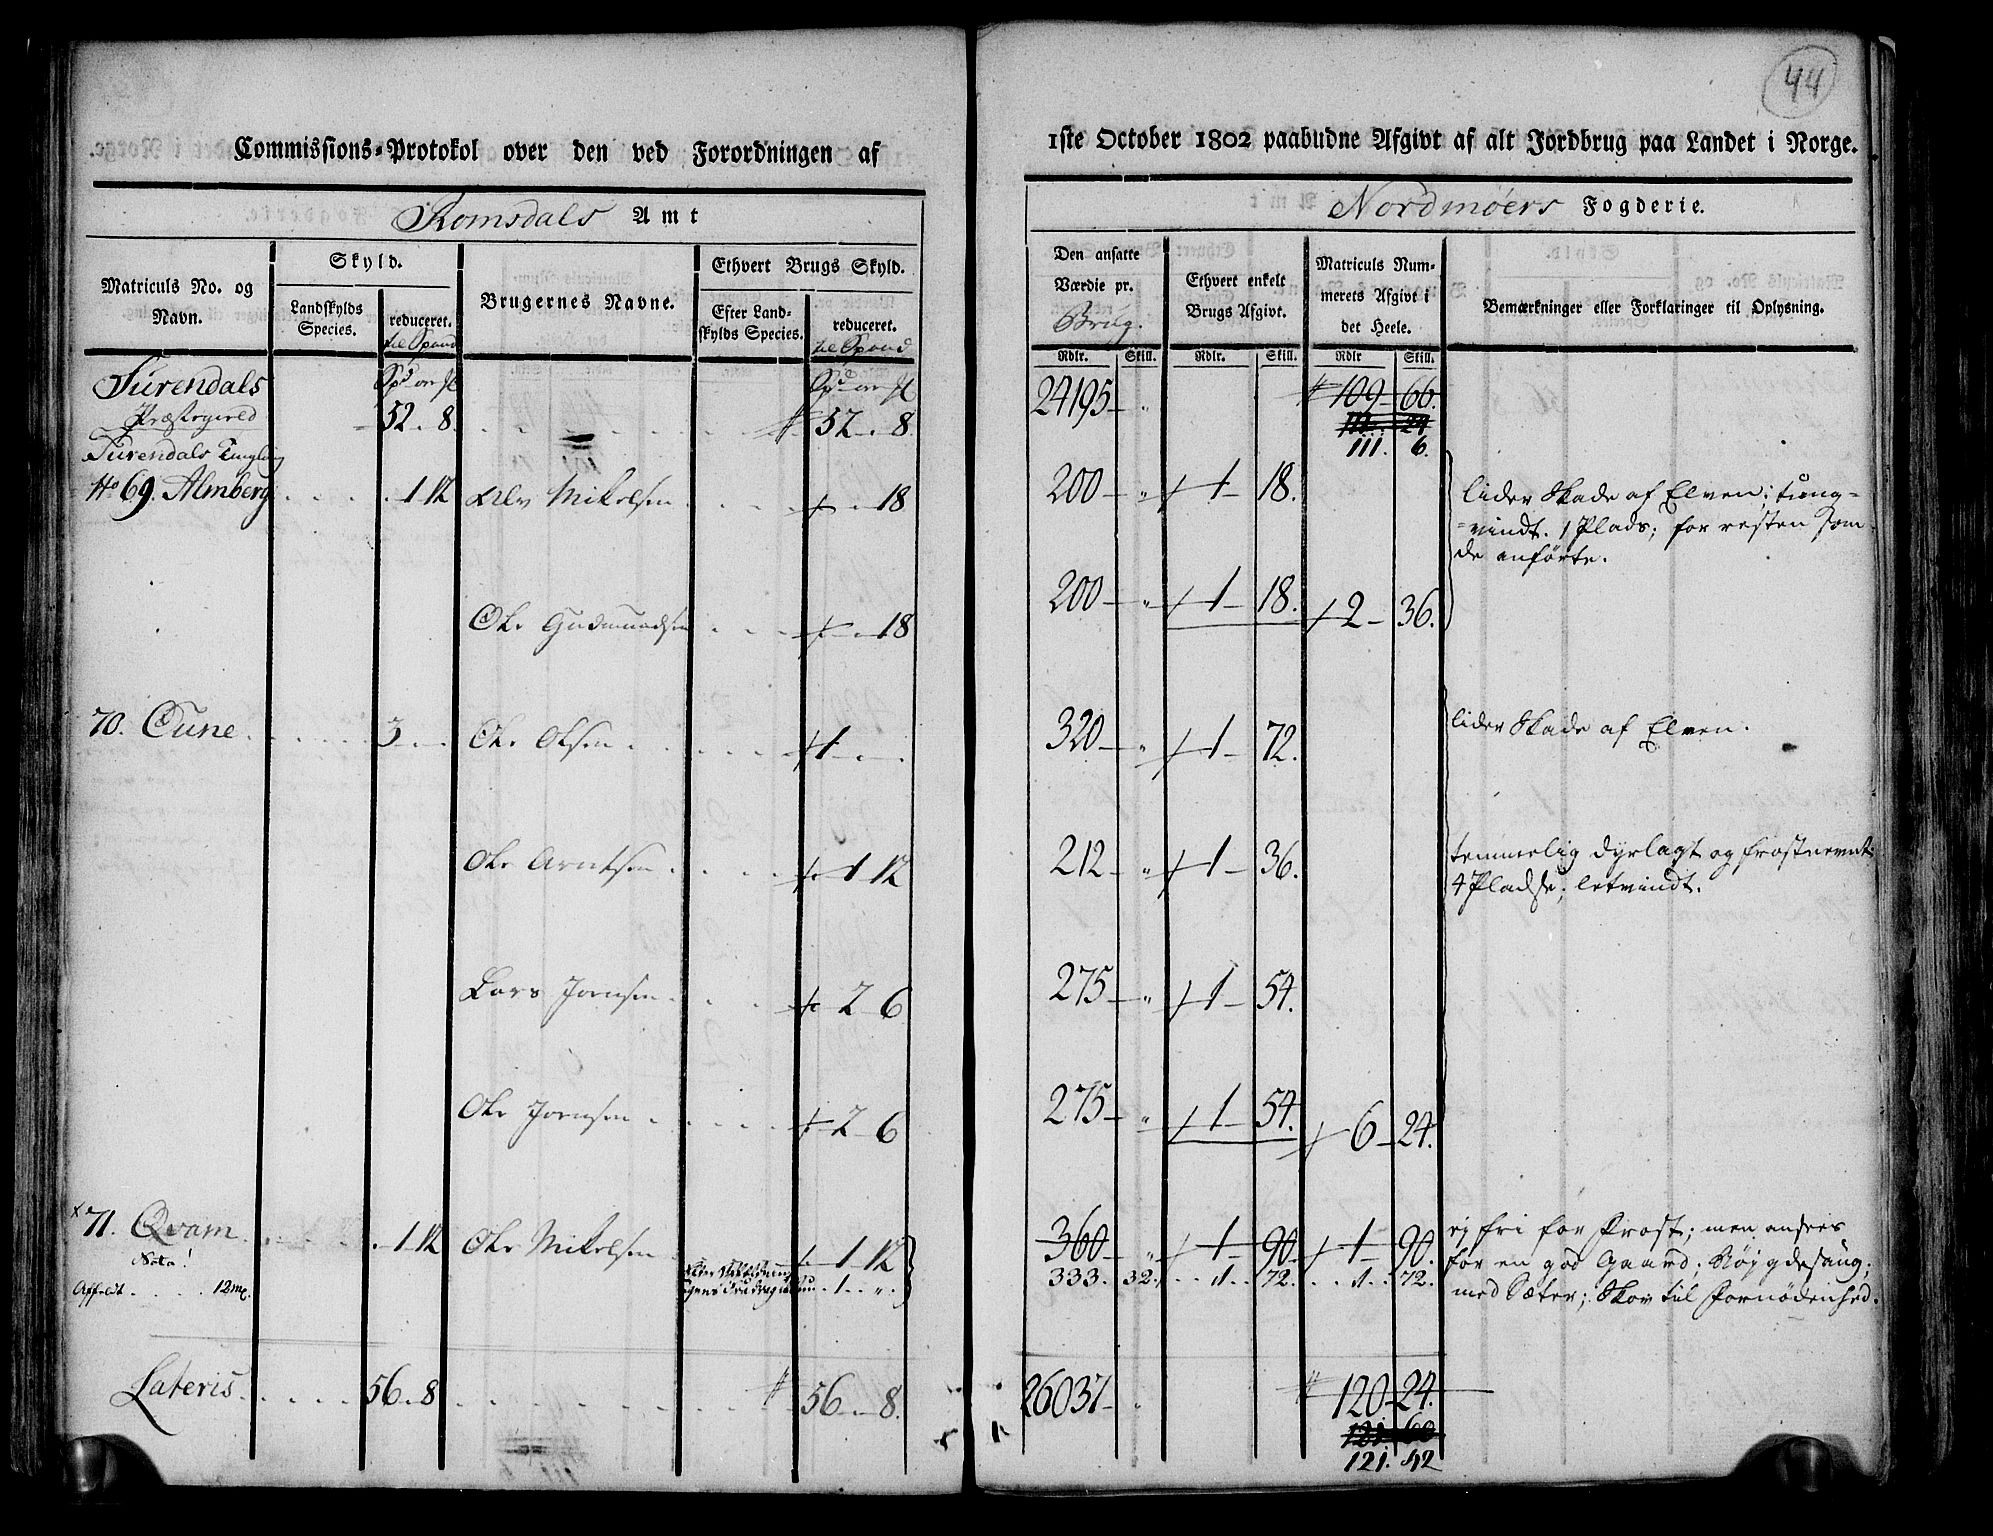 44
Commissions-Protokol over den ved Forordningen af
1ste October 1802 paabudne Afgivt af alt Jordbrug paa Landet i Norge.
Romsdals Amt
Nordmøers Fogderie.
Matriculs No. og Navn.
Skyld.
Landskylds Species.
reduceret. til Spand
Brugernes Navne.
Ethvert Brugs Skyld.
Efter Landskylds Species.
reduceret. til Spand
Den ansatte Værdie pr. Brug.
Ethvert enkelt Brugs Afgivt.
Matriculs Nummerets Afgivt i det Heele.
Bemærkninger eller Forklaringer til Oplysning.
Rdlr. Skill. Rdlr. Skill. Rdlr Skill.
Surendals
Præstegield 52. 8. 52. 8. 24195 109 66.
Surendals Tinglaug 111. 6.
No 69. Almberg 1 12 Mikelsen 18 200 1 18. lider Skade af Elven; tung=
=vindt. 1 Plads; for resten som
de anførte.
Ole Gudmundsen 18 200 1 18. 2 36.
70. Tune 3 Ole Olsen 1 320 1 72. lider Skade af Elven.
Ole Arntsen 1 12 212 1 36. temmelig dyrlagt og frostnemt
4 Pladse; letvindt.
Lars Joensen 2 6 275 1 54.
Ole Joensen 2 6 275 1 54. 6 24.
71. Qvam 1 12 Ole Mikelsen 1 12 360 1 90. 1 90. ej fri for Frost; men ansees
Nota! for en god Gaard;
Affeldt 12 mk. 1 333. 32. 1. 72. 1. 72. med Sæter; Skov til Fornødenhed.
Lateris 56. 8 56. 8. 26037 120 24.
121. 60
121. 42